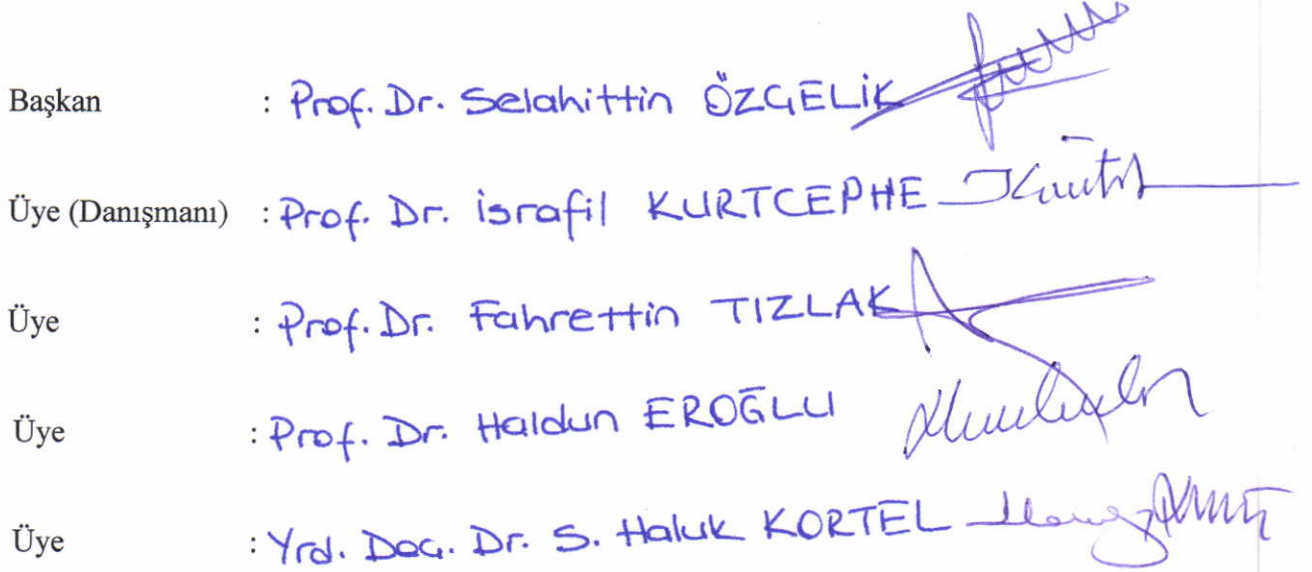 Başkan : Prof. Dr. Selahittin ÖZÇELİK
Üye (Danışmanı) : Prof. Dr. İsrafil KURTCEPHE
Üye : Prof. Dr. Fahrettin TIZLAK
Üye : Prof. Dr. Haldun EROĞLU
Üye : Yrd. Doç. Dr. S. Haluk KORTEL